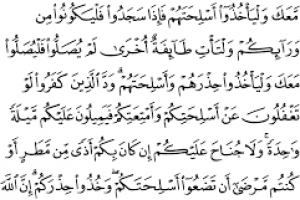 مَّعَكَ وَلْيَأْخُذُوٓا۟ أَسْلِحَتَهُمْ فَإِذَا سَجَدُوا۟ فَلْيَكُونُوا۟ مِن
وَرَآئِكُمْ وَلْتَأْتِ طَآئِفَةٌ أُخْرَىٰ لَمْ يُصَلُّوا۟ فَلْيُصَلُّوا۟
مَعَكَ وَلْيَأْخُذُوا۟ حِذْرَهُمْ وَأَسْلِحَتَهُمْ ۗ وَدَّ ٱلَّذِينَ كَفَرُوا۟ لَوْ
تَغْفُلُونَ عَنْ أَسْلِحَتِكُمْ وَأَمْتِعَتِكُمْ فَيَمِيلُونَ عَلَيْكُم مَّيْلَةً
وَٰحِدَةً ۚ وَلَا جُنَاحَ عَلَيْكُمْ إِن كَانَ بِكُمْ أَذًى مِّن مَّطَرٍ أَوْ
كُنتُم مَّرْضَىٰٓ أَن تَضَعُوٓا۟ أَسْلِحَتَكُمْ ۖ وَخُذُوا۟ حِذْرَكُمْ ۗ إِنَّ ٱللَّهَ